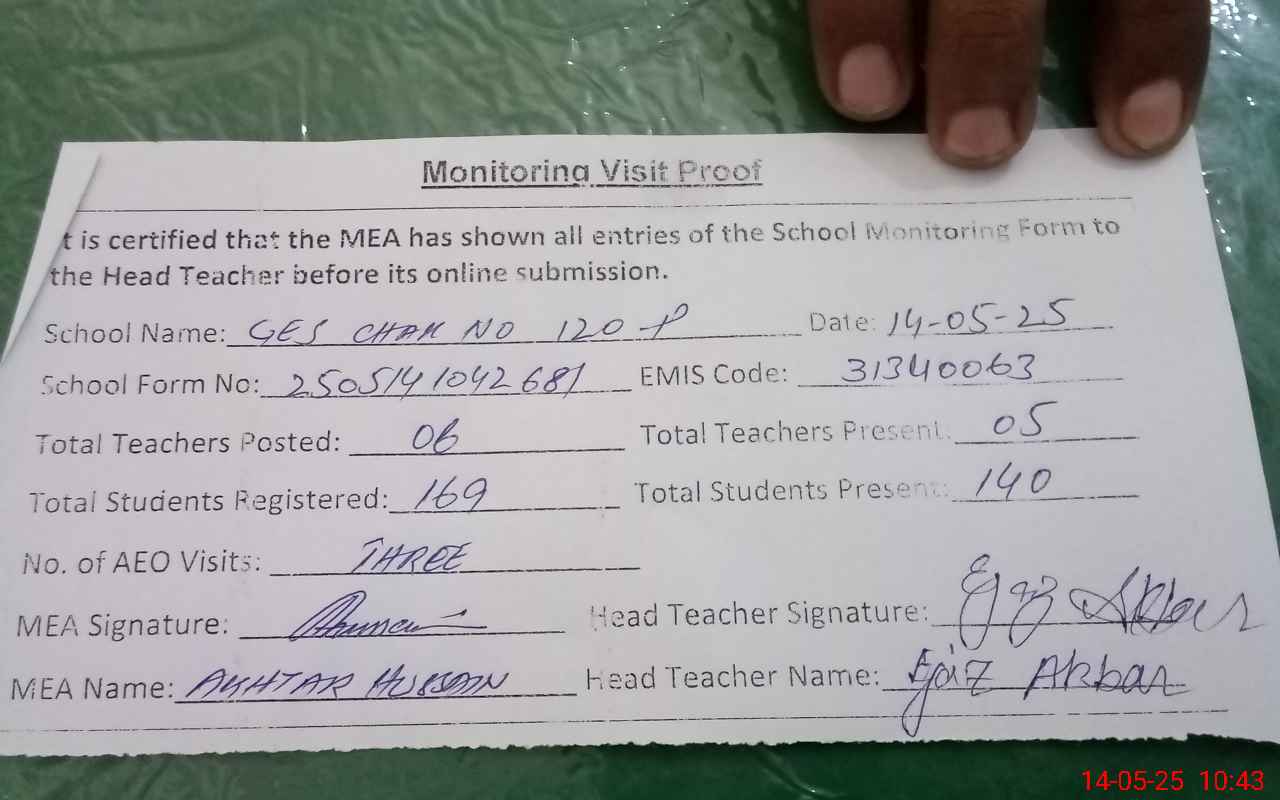 Monitoring Visit Proof
t is certified that the MEA has shown all entries of the School Monitoring Form to
the Head Teacher before its online submission.
School Name: GES CHAK NO 120-P Date: 14-05-25
School Form No: 2505141042681 EMIS Code: 31340063
Total Teachers Posted: 06 Total Teachers Present: 05
Total Students Registered: 169 Total Students Present: 140
No. of AEO Visits: THREE
MEA Signature: Head Teacher Signature: Ejaz Akbar
MEA Name: AKHTAR HUSSAIN Head Teacher Name: Ejaz Akbar
14-05-25 10:43